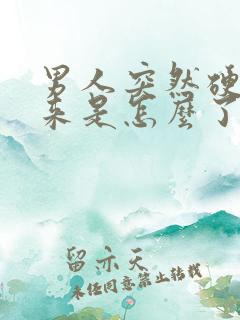 男人突然硬
来是怎麼了
留亦天
未经同意禁止转载